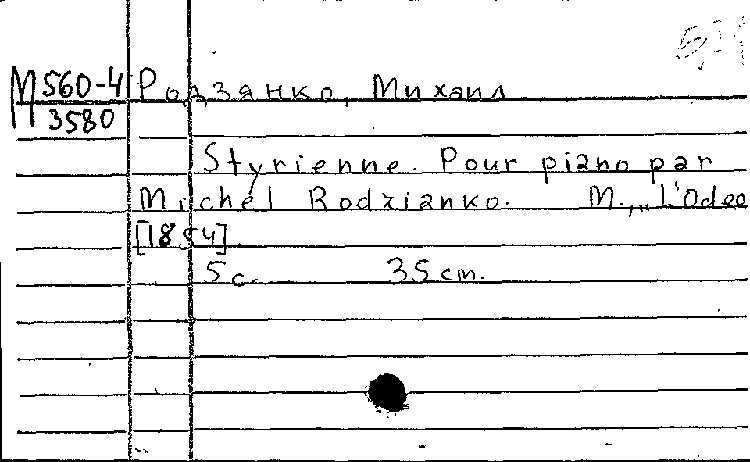 М 560-4
3580
Родзянко, Михаил
Styrienne. Pour piano par
Michel Rodzianko. М., „L'Odeo
[1854]
5 с. 35 cm.